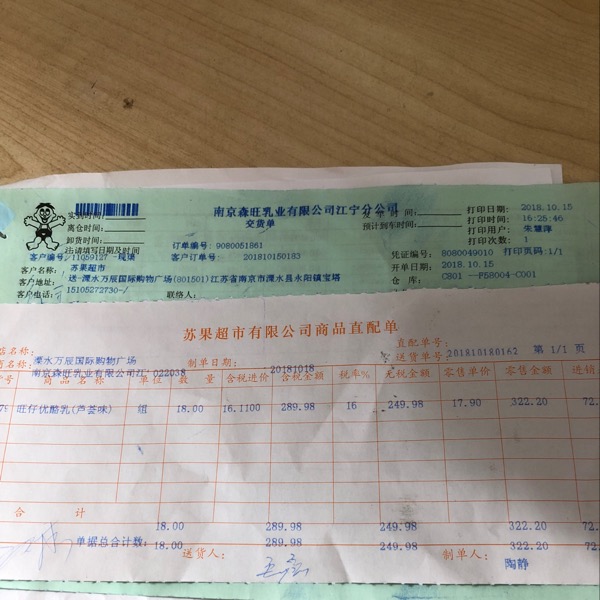 南京森旺乳业有限公司江宁分公司
交货单
实到时间:
离仓时间:
卸货时间:
注:请填写日期及时间
发车时间:
预计到车时间:
打印日期: 2018.10.15
打印时间: 16:25:46
打印用户: 朱慧萍
打印次数: 1
订单编号: 9080051861
凭证编号: 8080049010 打印页码:1/1
客户编号: 11059127 -琨瑛
客户订单号: 201810150183
开单日期: 2018.10.15
客户名称: 苏果超市
仓 库: C801 --F58004-C001
客户地址: 送-溧水万辰国际购物广场(801501)江苏省南京市溧水县永阳镇宝塔
客户电话: 15105272730-/ 联络人:
苏果超市有限公司商品直配单
店名称: 溧水万辰国际购物广场
直配单号:
商名称: 南京森旺乳业有限公司江:022038
制单日期: 20181018
送货单号: 201810180162 第 1/1 页
号 商 品 名 称 单位 数 量 含税进价 含税金额 税率% 无税金额 零售单价 零售金额 进销
旺仔优酪乳(芦荟味) 组 18.00 16.1100 289.98 16 249.98 17.90 322.20 72.
合 计 18.00 289.98 249.98 322.20 72.
单据总合计数: 18.00 289.98 249.98 322.20 72.
送货人:
制单人: 陶静